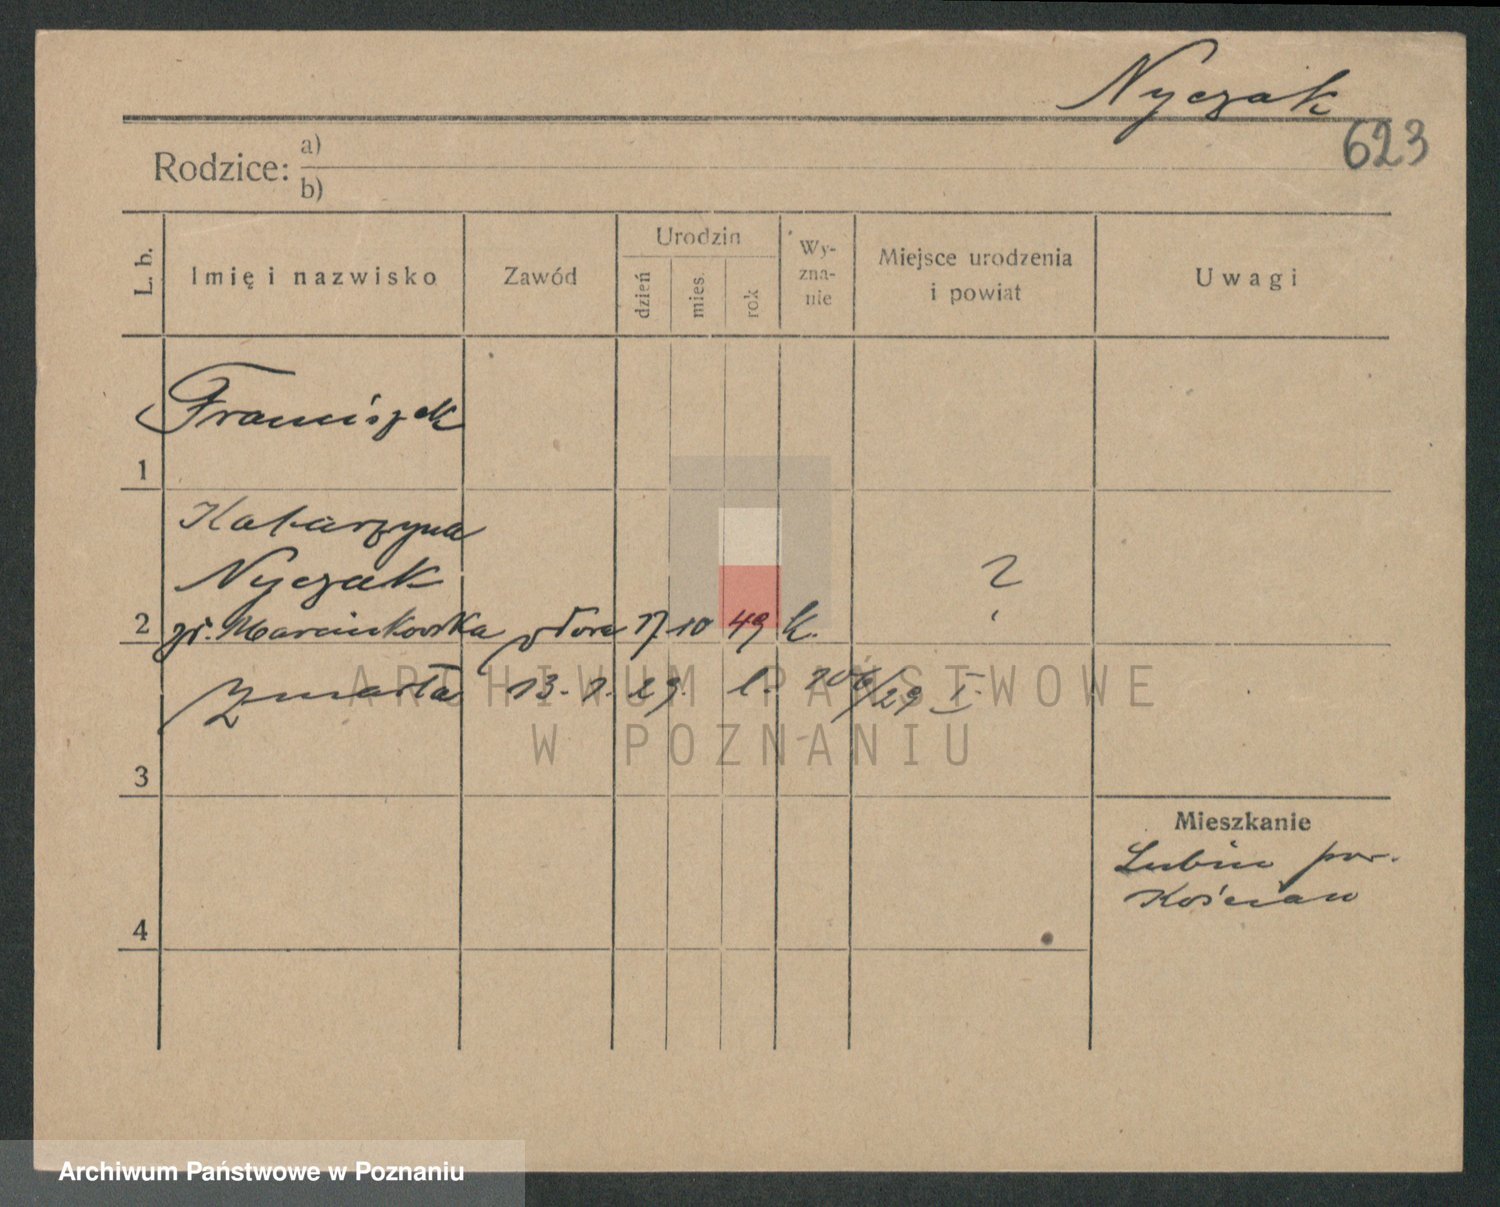 Nyczak
623
Rodzice: a)
b)
L. b.
Imię i nazwisko
Zawód
Urodzin
dzień
mies.
rok
Wy-
zna-
nie
Miejsce urodzenia
i powiat
Uwagi
Franciszek
1
Katarzyna
Nyczak
?
2 Marcinkowska wdowa 17 10 49 k.
ARCHIWUM PAŃSTWOWE
zmarła 13. 1. 29. l. 106/29 I.
W POZNANIU
3
Mieszkanie
Lubiń pow.
Kościan
4
Archiwum Państwowe w Poznaniu